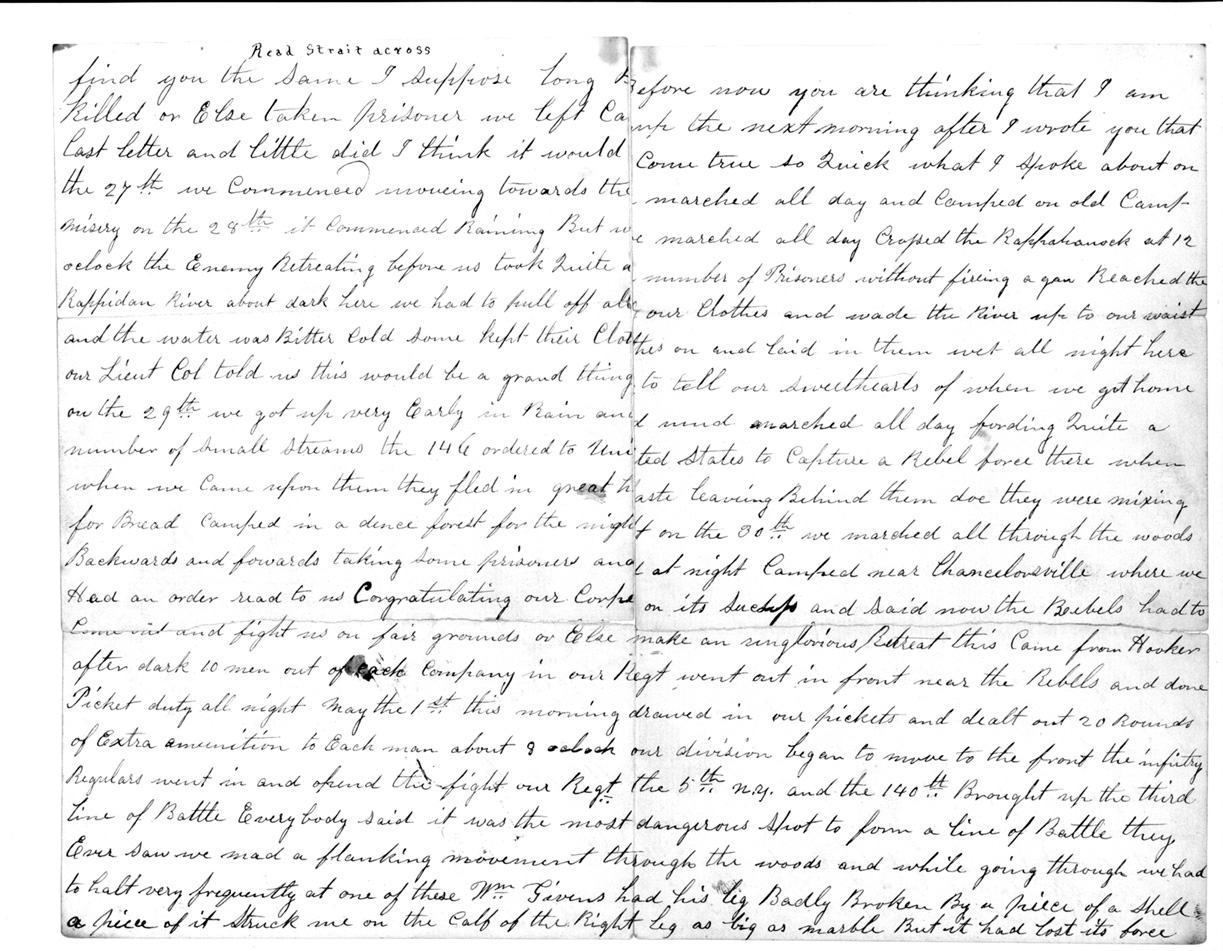 Read Strait across
find you the same I suppose long Before now you are thinking that I am
killed or Else taken prisoner we left Camp the next morning after I wrote you that
last letter and little did I think it would Come true so Quick what I spoke about on
the 27th we Commenced moveing towards the marched all day and Camped on old Camp
misery on the 28th it Commenced Raining But we marched all day Crossed the Rappahanock at 12
oclock the Enemy Retreating before us took Quite a number of Prisoners without fireing a gun Reached the
Rappidan River about dark here we had to pull off all our Clothes and wade the River up to our waist
and the water was Bitter Cold some kept their Clothes on and laid in them wet all night here
our Lieut Col told us this would be a grand thing to tell our sweethearts of when we got home
on the 29th we got up very Early in Rain and mud marched all day fording Quite a
number of small streams the 146 ordered to United States to Capture a Rebel force there when
when we Came upon them they fled in great haste leaveing Behind them doe they were mixing
for Bread Camped in a dence forest for the night on the 30th we marched all through the woods
Backwards and fowards taking some prisoners and at night Camped near Chancelorsville where we
Had an order read to us Congratulating our Corps on its and said now the Rebels had to
Come out and fight us on fair grounds or Else make an inglorious Retreat this Came from Hooker
after dark 10 men out of each Company in our Regt went out in front near the Rebels and done
Picket duty all night May the 1st this morning drawed in our pickets and dealt out 20 Rounds
of Extra amunition to Each man about 8 oclock our division began to move to the front the infitry
Regulars went in and opend the fight our Regt the 5th N.Y. and the 140th Brought up the third
line of Battle Everybody said it was the most dangerous spot to form a line of Battle they
Ever saw we mad a flanking movement through the woods and while going through we had
to halt very frequently at one of these Wm Givens had his leg Badly Broken By a piece of a shell
a piece of it struck me on the Calf of the Right leg as big as marble But it had lost its force